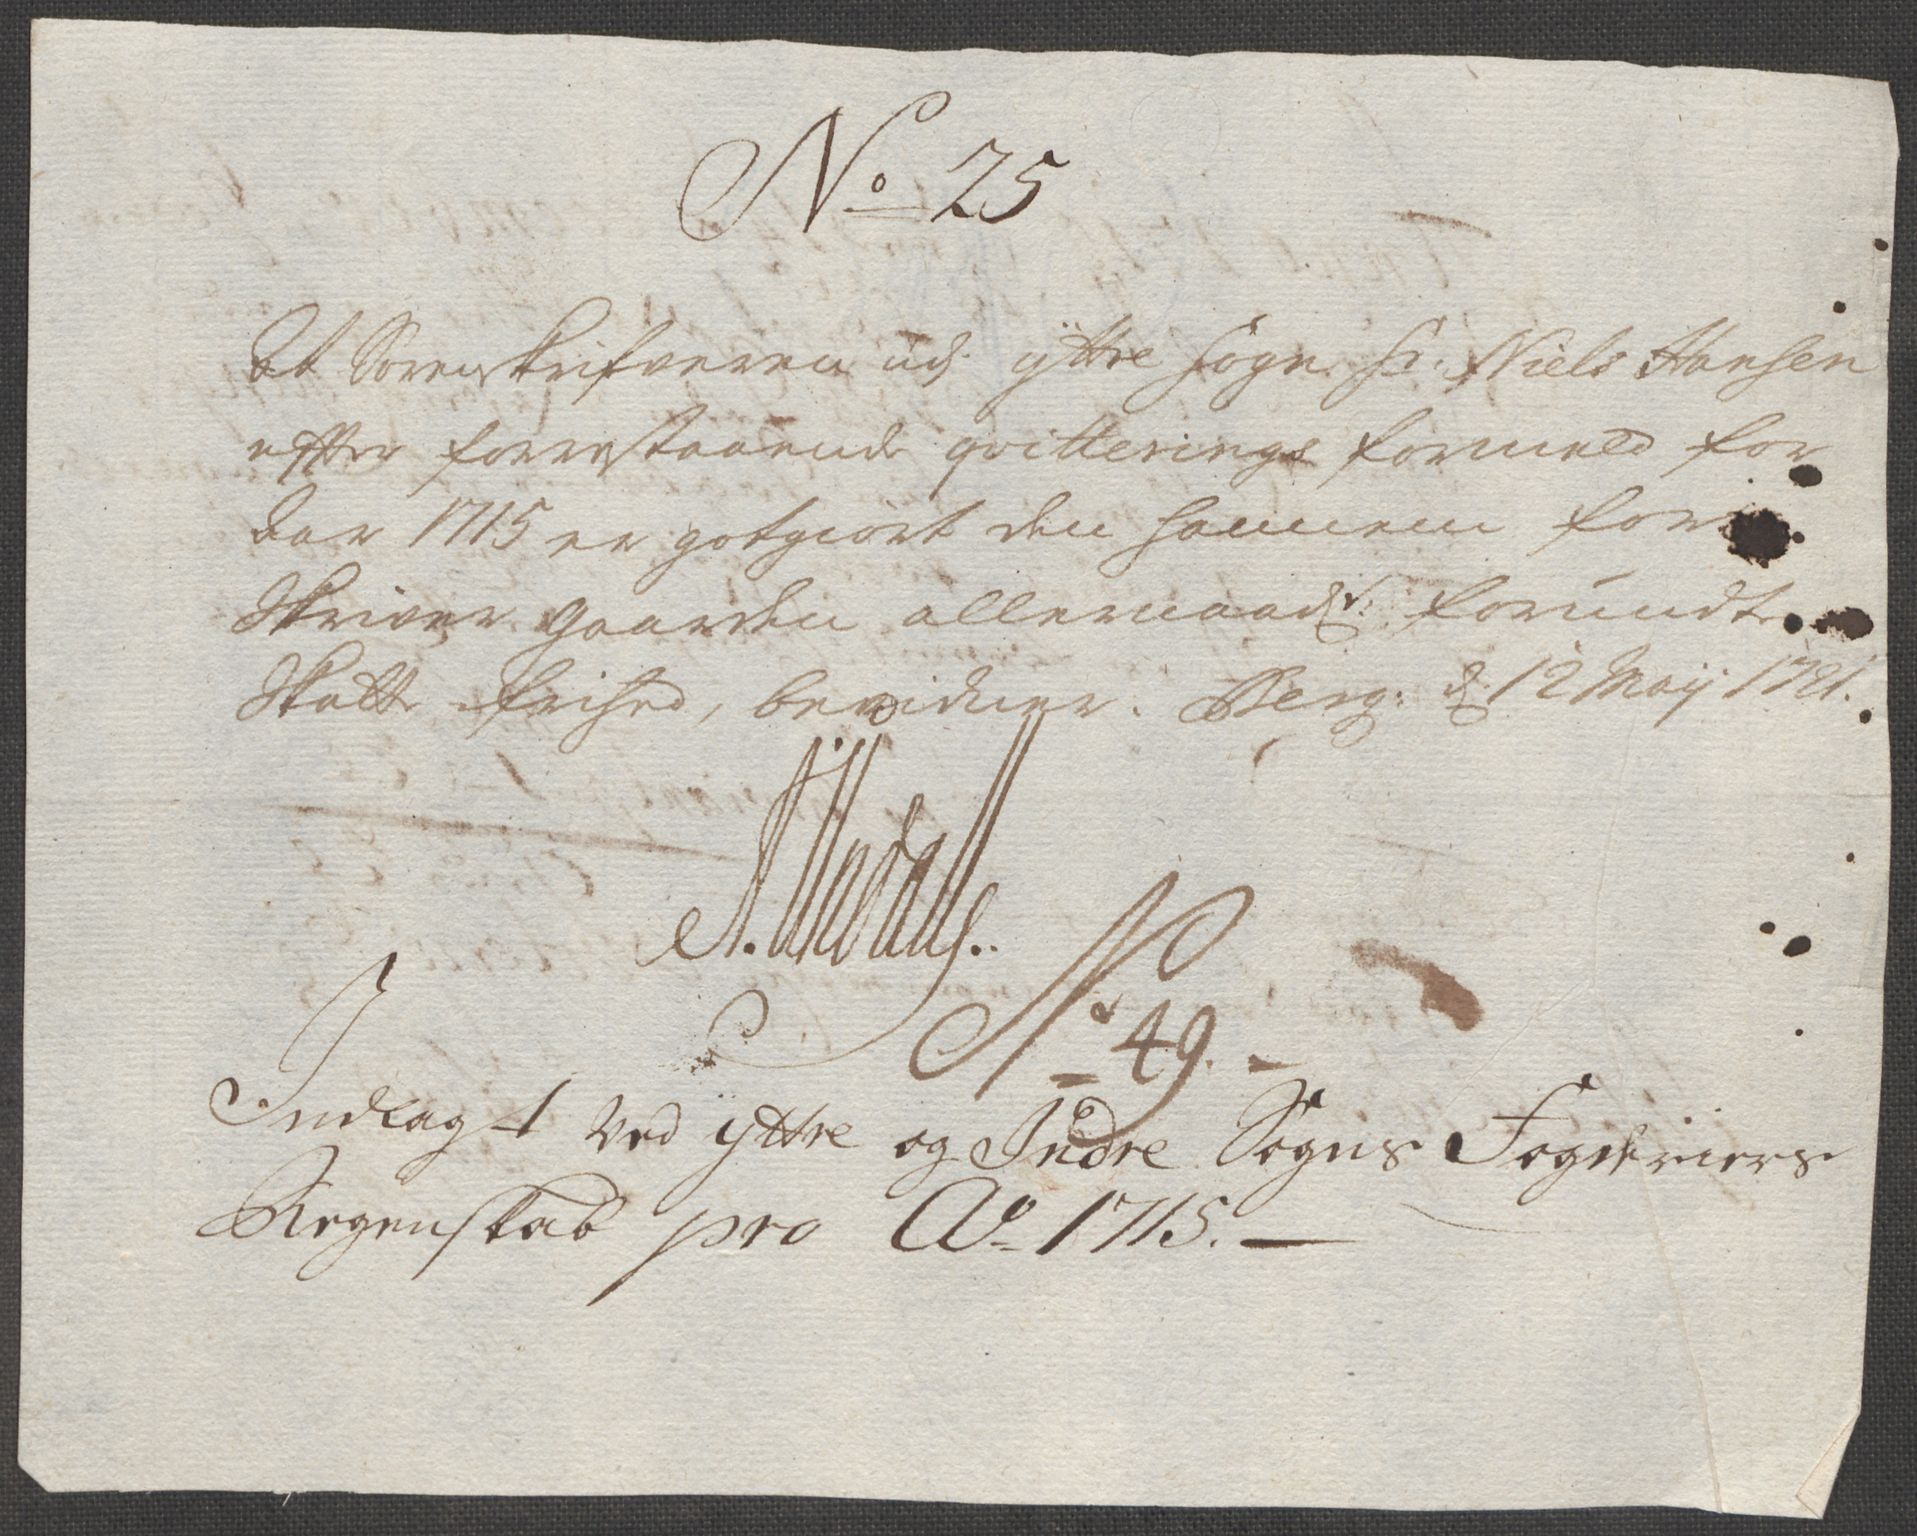 No 25
At Sorenskrifveren udj ÿttre Sogn Sr. Niels Hansen
efter forrestaaende qvitterings formeld for
Aar 1715 er gotgiort den hannem for
Skriver gaarden allernaadst: forundte
Skatte frihed, bevidner. Berg: d. 12 Maij 1721.
No 49.
Indlagt ved ÿttre og Indre Sogns Fogderiers
Regenskab pro Ao 1715.